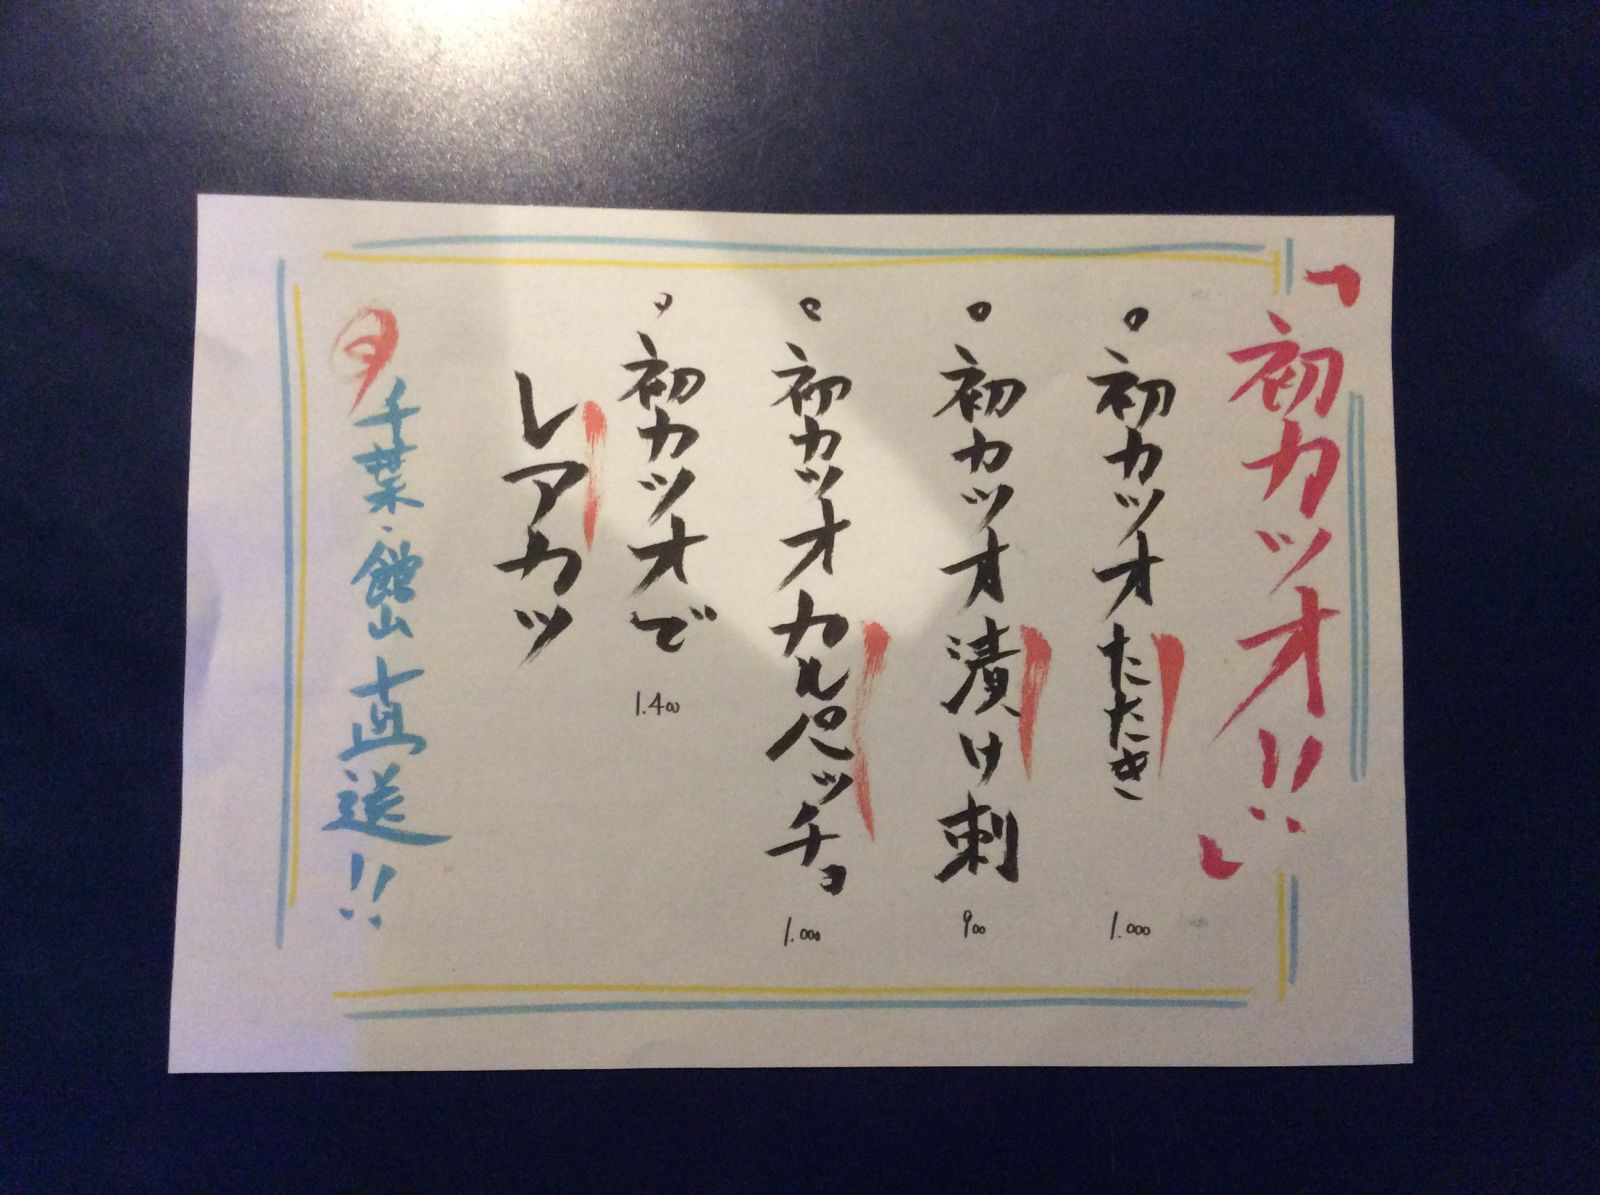 「初カツオ!!」
。初カツオたたき 1.000
。初カツオ漬け刺 900
。初カツオカルパッチョ 1.000
。初カツオで 1.400
レアカツ
千葉・館山直送!!